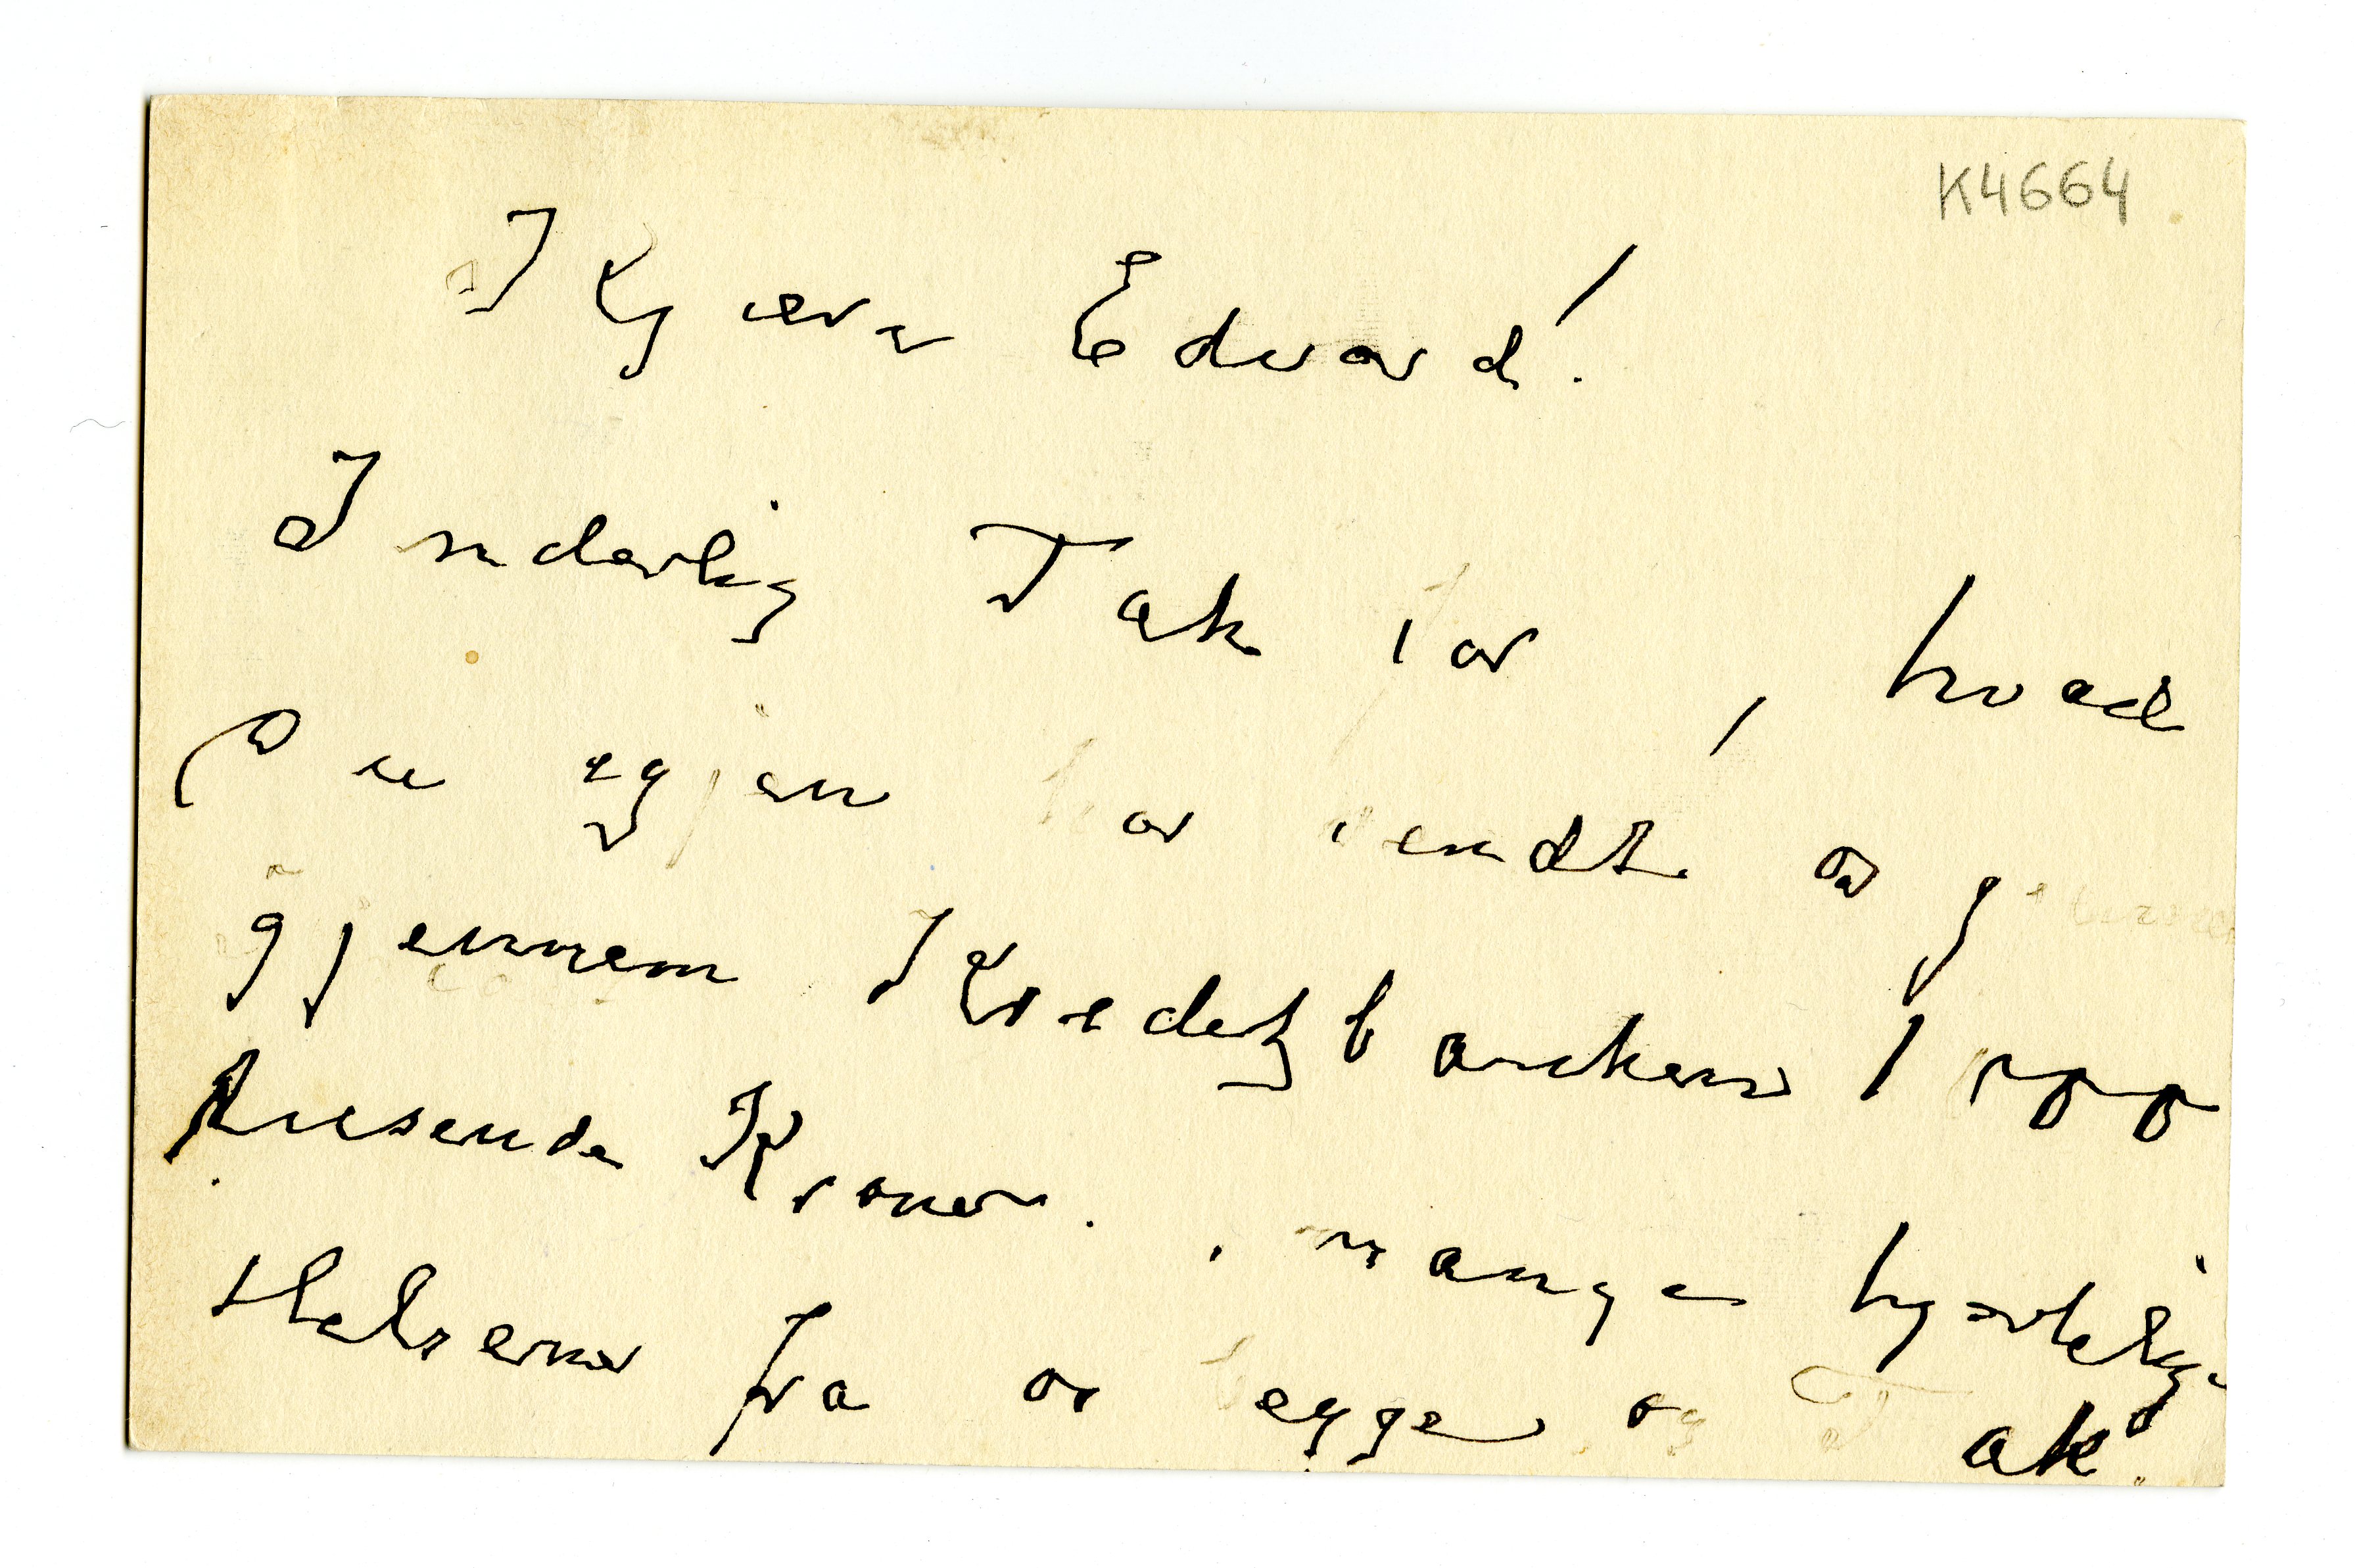 K4664
Kjære Edvard!
Inderlig Tak for, hvad
Du egjen har sendt og
gjennem Kreditbanken 1000
tusende Kroner. mange hjertelige
Helsener fra os begge og Tak.